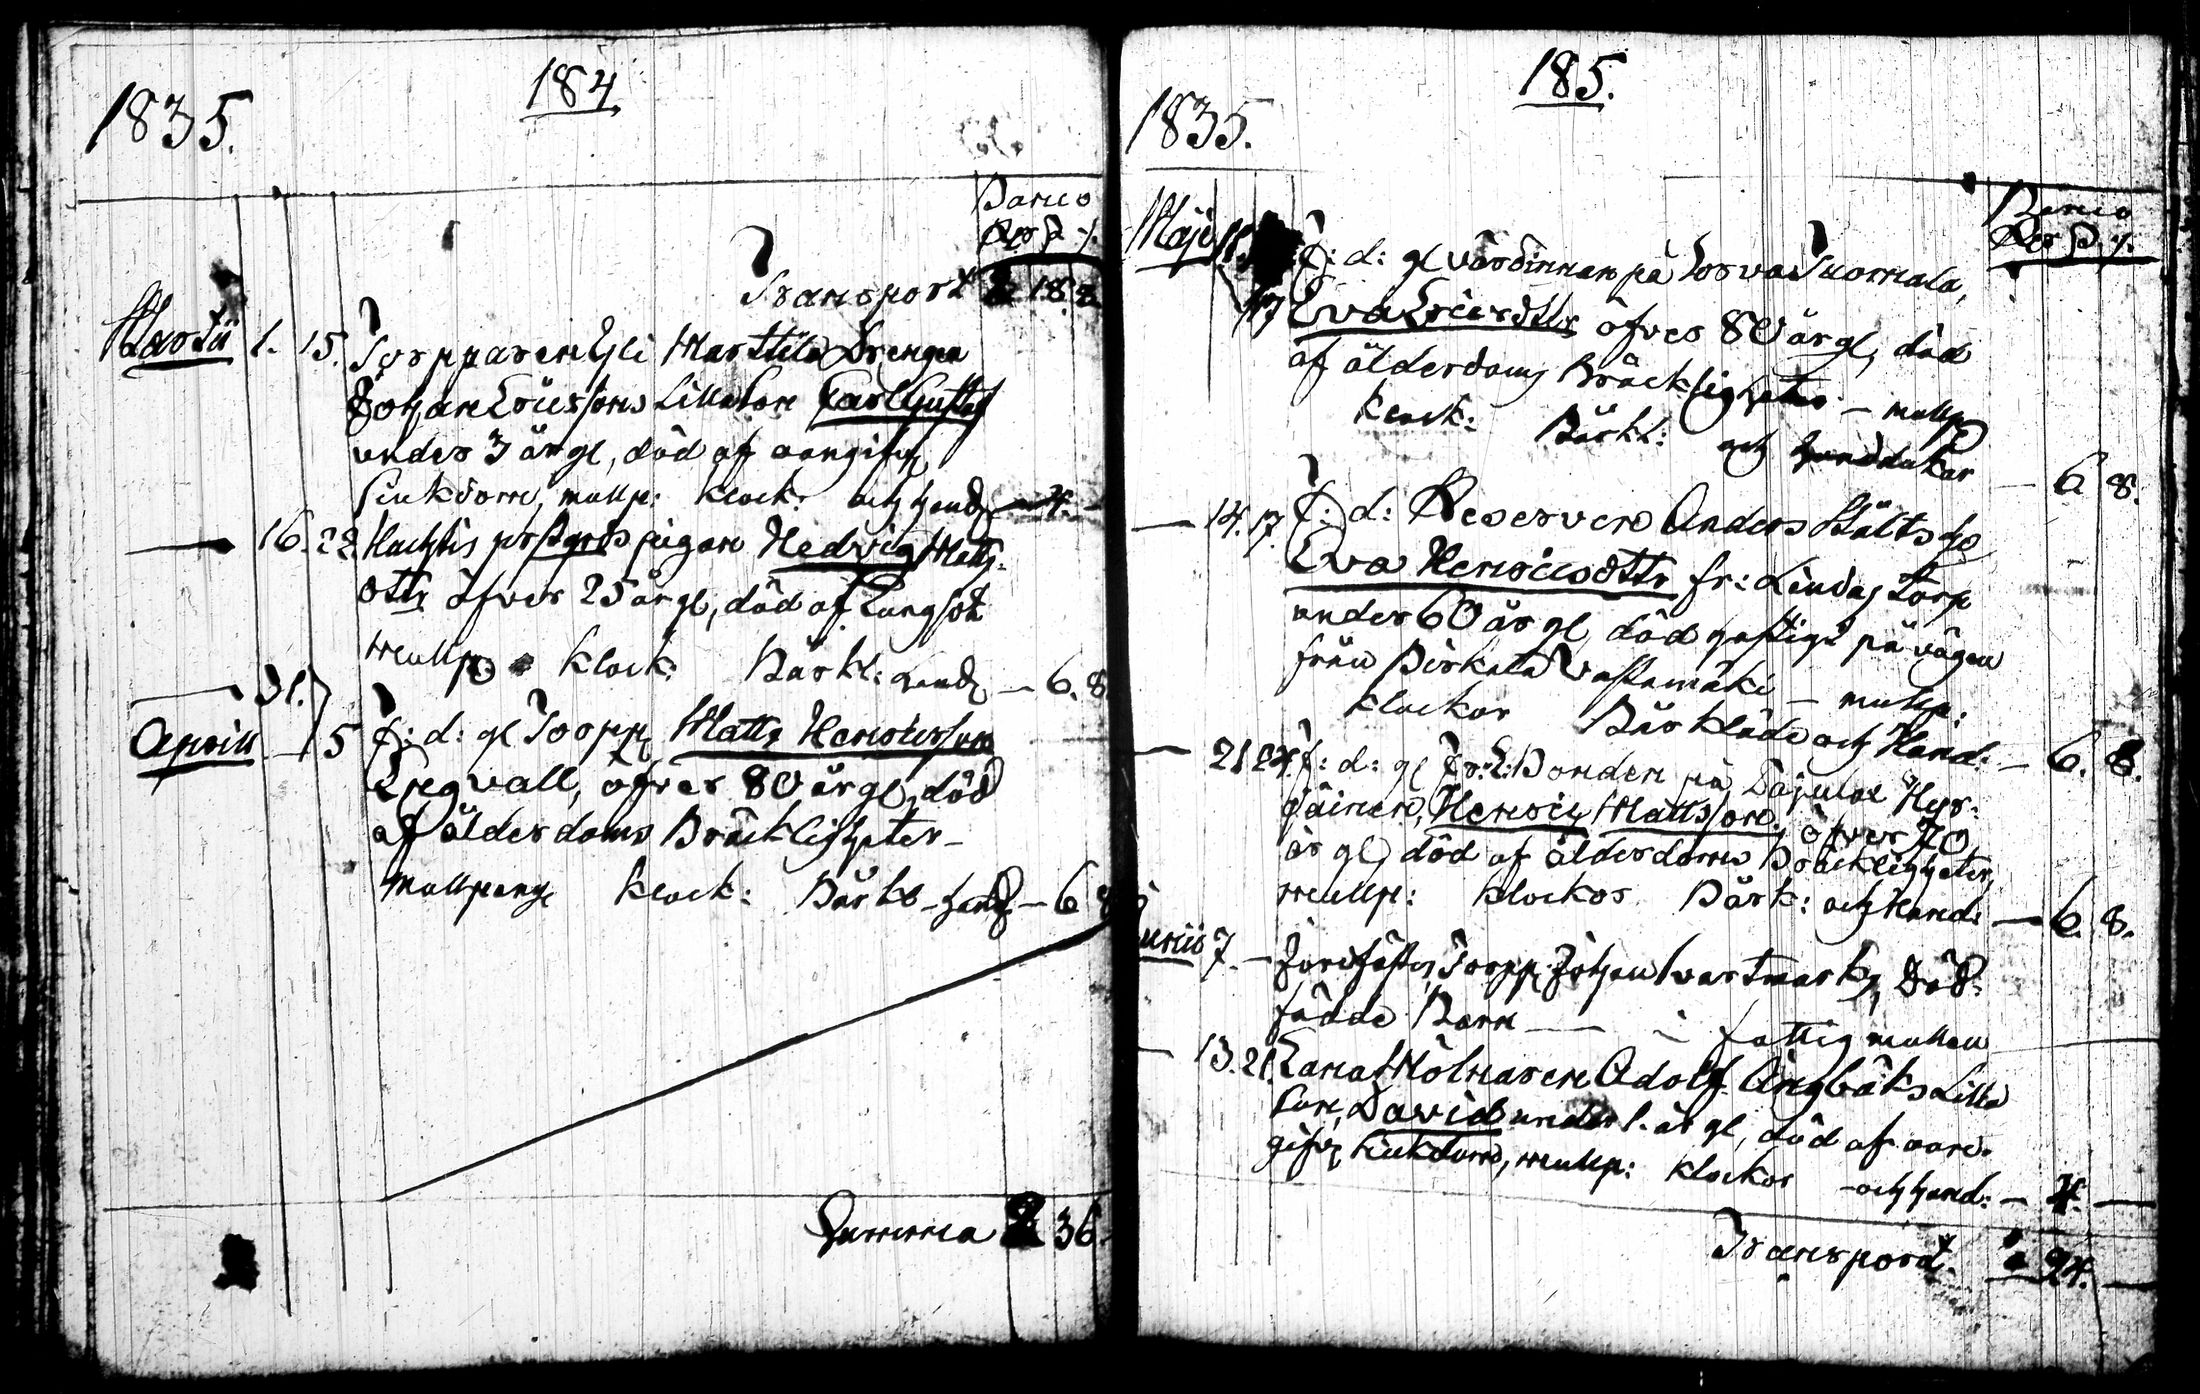 184
1835.
Banco
Rdr S r.
Transport 2 18 8
Martii 1. 15. Torpparen Yli Marttila Drengen
Johan Ericssons Lilla Son Carl Gustaf
under 3 år gl, död af oangifven
sjukdom, mullp: klock: och handd — 4. —
— 16. 22 pigan Hedvig Matts
dttr öfver 25 år gl, död af Lungsot
mullp. klock. Bårkl: handd — 6. 8
31.
Aprill — 5 F: d: gl Torpp Matts Henricsson
Engvall, öfver 80 år gl, död
af ålderdoms Bräckligheter —
mullpeng klock: Bårkl — handd — 6 8
Summa 2 36.
185.
1835.
Banco
Rdr S r.
Maji 17 F: d: gl värdinnan på Sorva Tuomala,
Eva Ericsdttr öfver 80 år gl, död
af ålderdoms Bräckligheter — mullp
klock: Bårkl: och handdukar — 6 8.
— 14. 17. F: d: Reserven Anders Stålts he
Eva Henricsdttr fr: Lindas Torp
under 60 år gl, död hastigt på vägen
från Birkala Vastamäki — mullp:
klockor Bårkläde och Hand: — 6. 8.
— 21 24. F: d: gl Fr: E: Bonden på
Henric Mattsson, öfver 70
år gl, död af ålderdoms Bräckligheter,
mullp: klockor Bårk: och Hand: — 6. 8.
Junii 7. — Torpp: Johan Svartmarks, Död-
födde Barn — — fattig mullen
— 13. 21. Adolf Ängbäks Lilla
Son, David under 1. år gl, död af oan-
gifven sjukdom, mullp: klockor — och hand: — 4. —
Transport. " 24. —